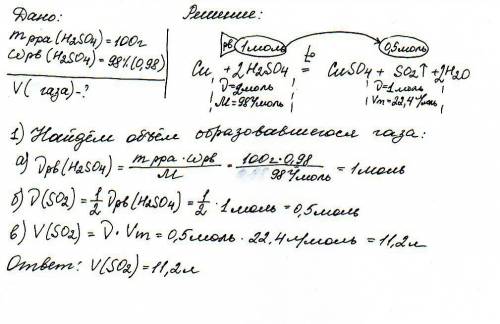 Дано:
Решение:
m рра (H2SO4) = 100г
ω рв (H2SO4) = 98% (0,98)
V (газа) - ?
рв 1моль 0,5моль
t°
Cu + 2H2SO4 = CuSO4 + SO2↑ + 2H2O
ν=2моль ν=1моль
M=98г/моль Vm=22,4 л/моль
1) Найдём объём образовавшегося газа:
а) ν рв (H2SO4) = m рра · ω рв / M = 100г · 0,98 / 98г/моль = 1моль
б) ν (SO2) = 1/2 ν рв (H2SO4) = 1/2 · 1моль = 0,5моль
в) V (SO2) = ν · Vm = 0,5моль · 22,4 л/моль = 11,2л
Ответ: V (SO2) = 11,2л